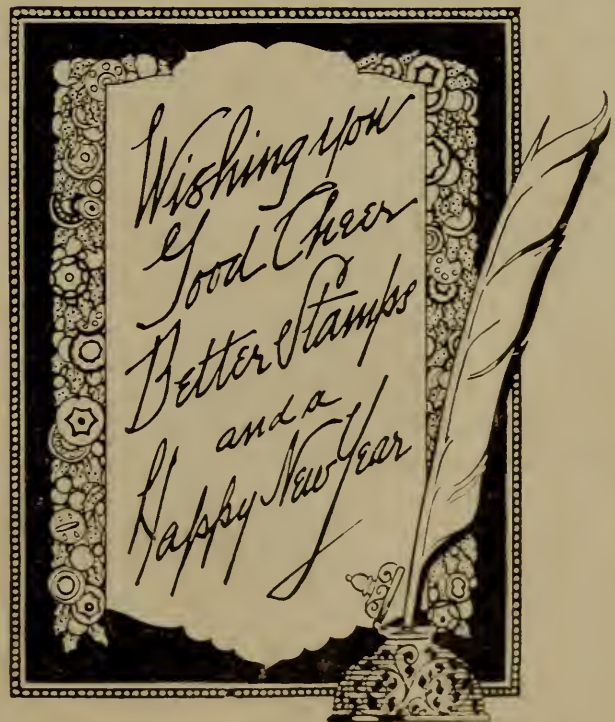 Wishing you
Good Cheer
Better Stamps
and a
Happy New Year